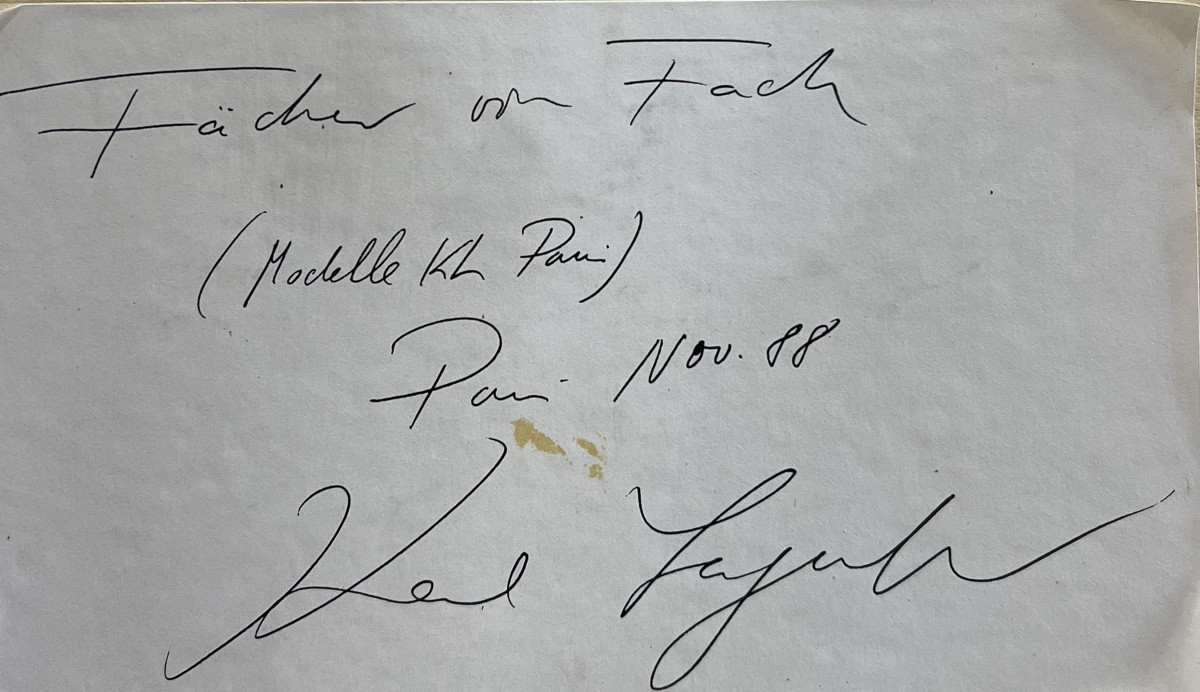 Fächer vom Fach
(Modelle KL Paris)
Paris Nov. 88
Karl Lagerfeld